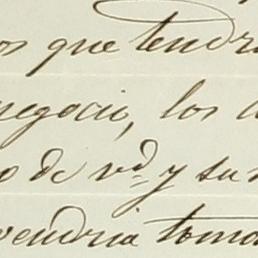 os que tendrá
negocio, los
o de vd y su
vendria toma